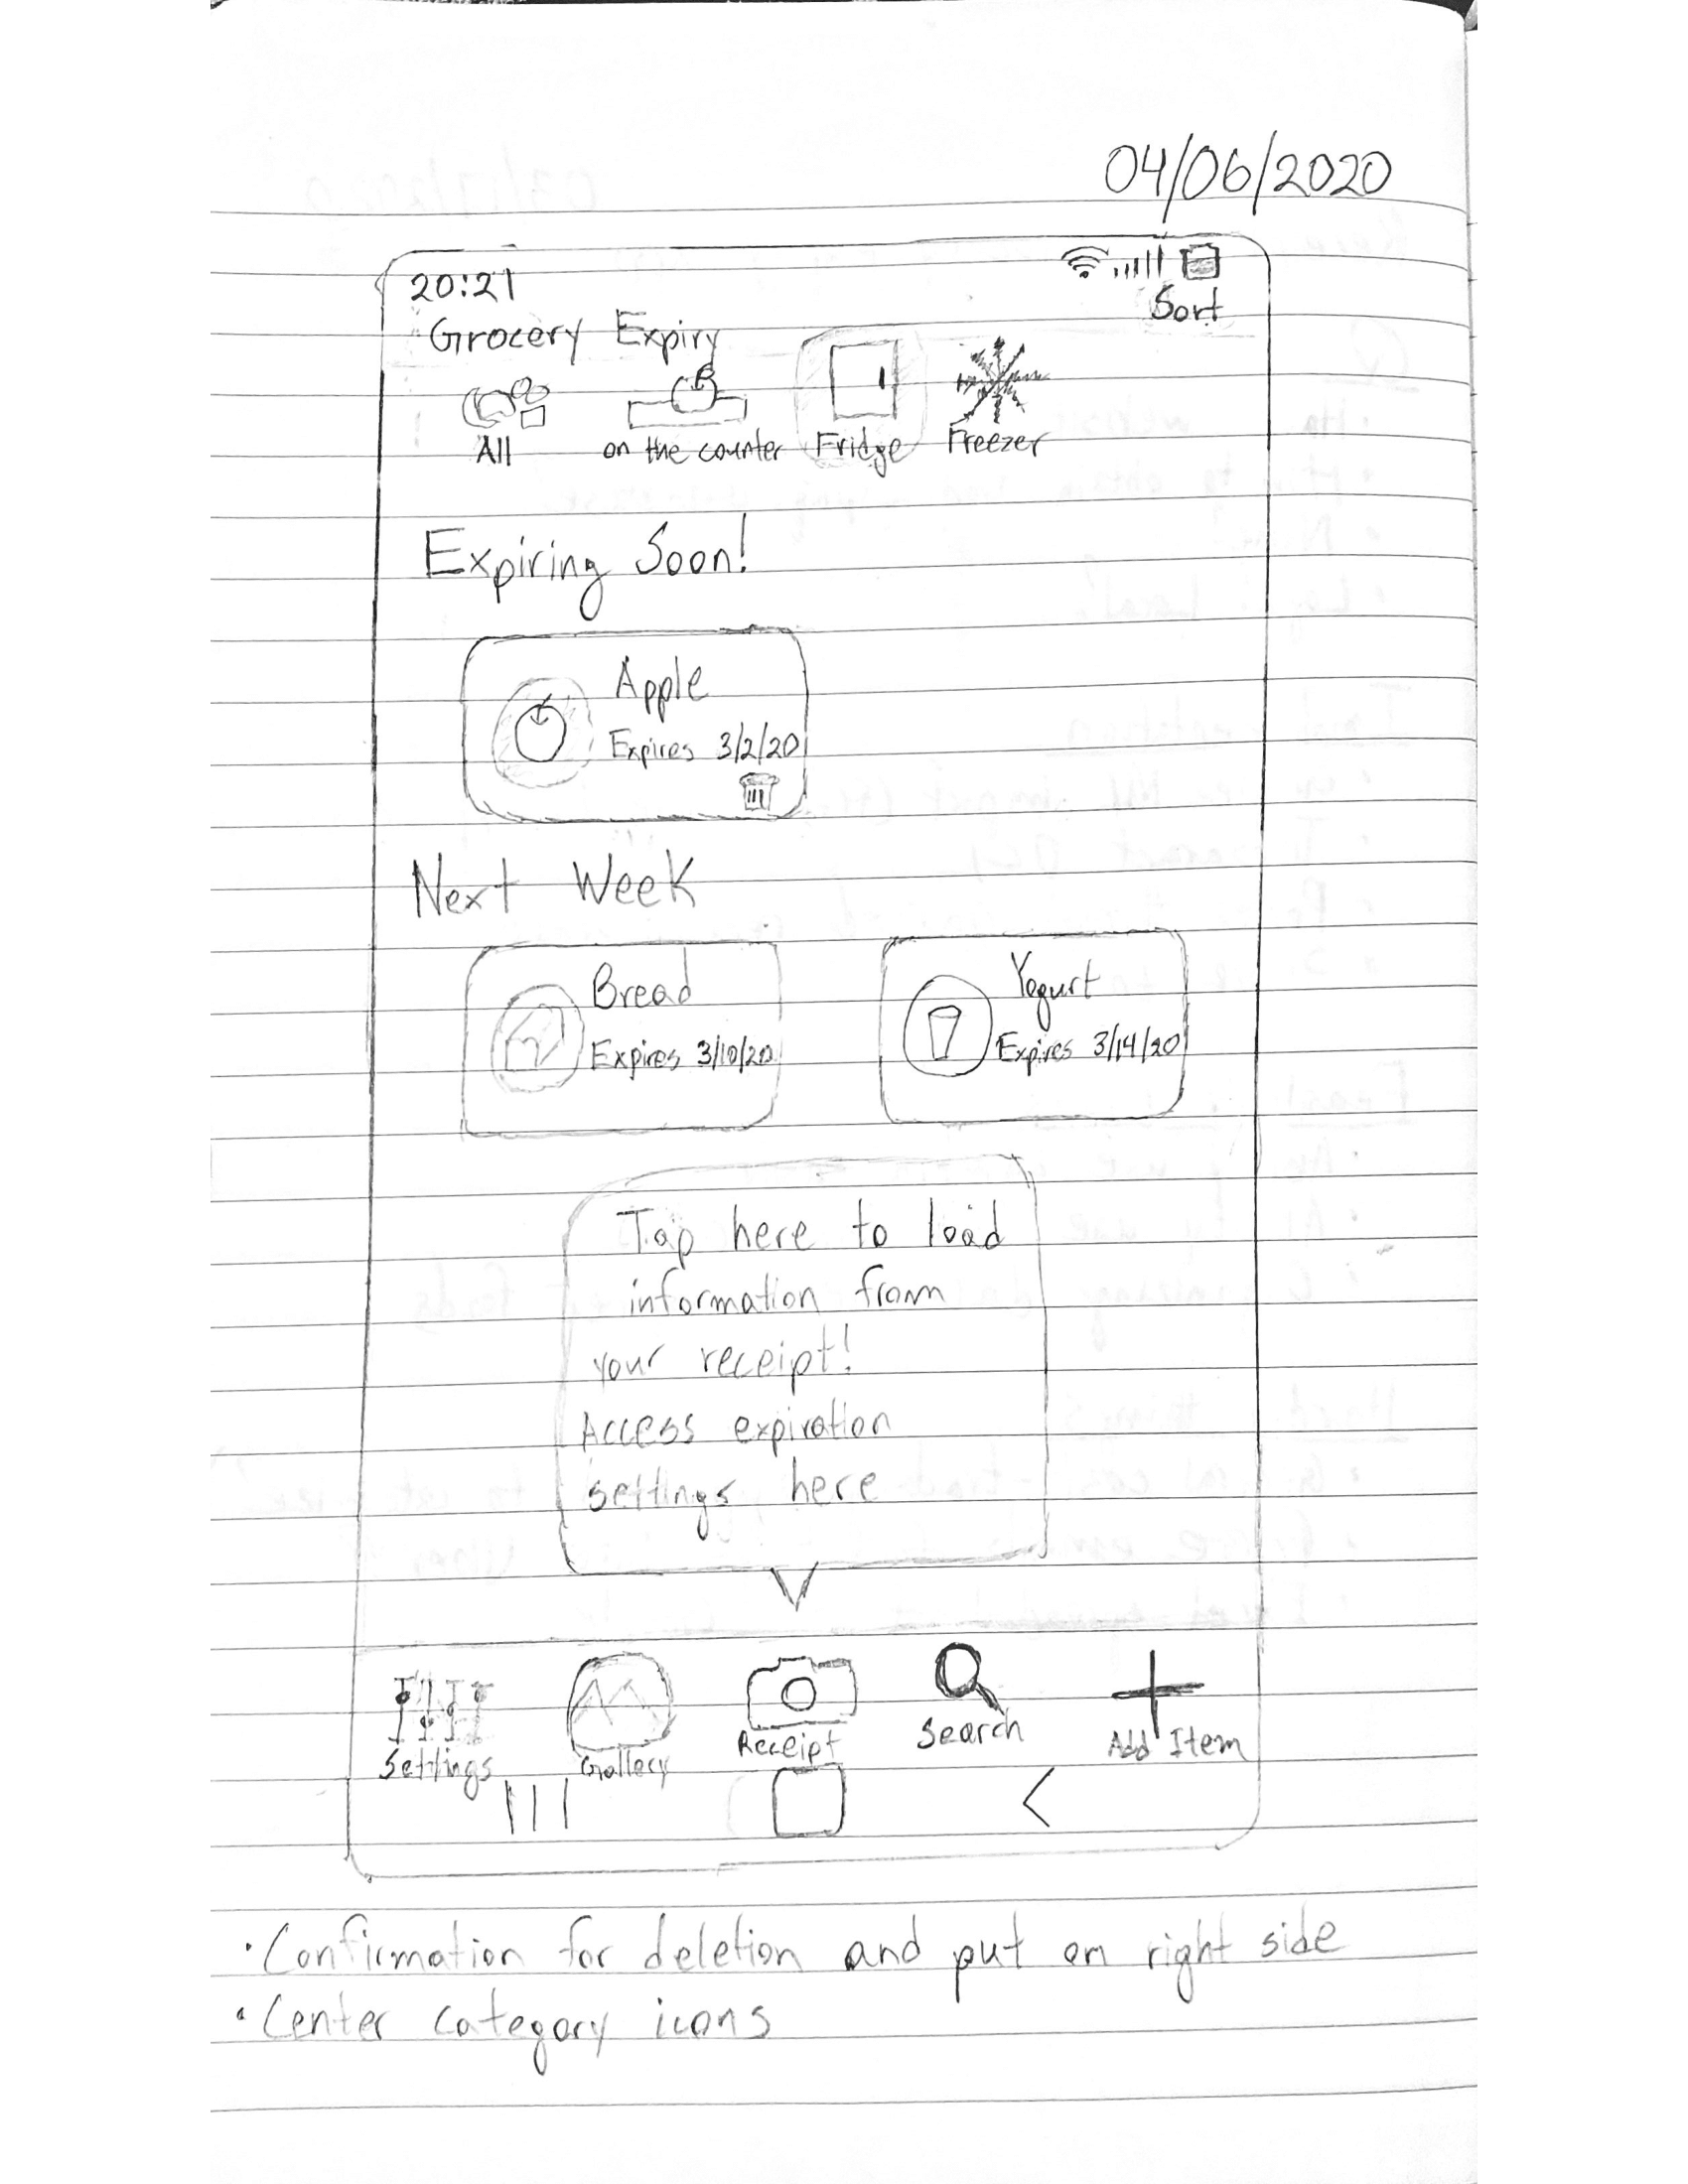 04/06/2020
20:21
Sort
Grocery Expiry
All
on the counter
Fridge
Freezer
Expiring Soon!
Apple
Expires 3/2/20
Next Week
Bread
Expires 3/10/20
Yogurt
Expires 3/14/20
Tap here to load
information from
your receipt!
Access expiration
settings here
Settings
Gallery
Receipt
Search
Add Item
• Confirmation for deletion and put on right side
• Center category icons